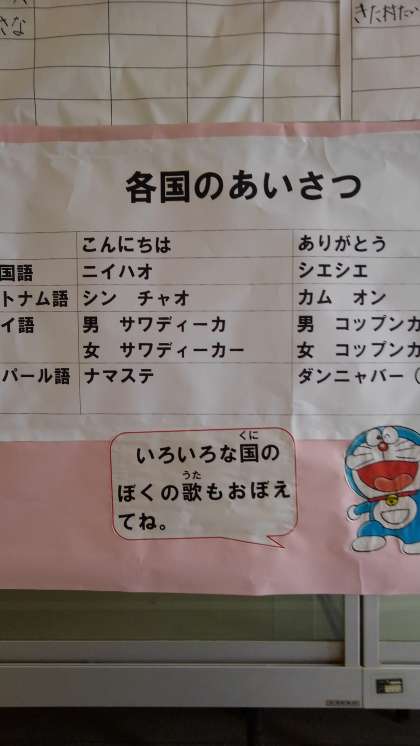 各国のあいさつ
こんにちは ありがとう
国語 ニイハオ シエシエ
トナム語 シン チャオ カム オン
イ語 男 サワディーカ 男 コップンカ
女 サワディーカー 女 コップンカ
パール語 ナマステ ダンニャバー（
くに
いろいろな国の
うた
ぼくの歌もおぼえ
てね。